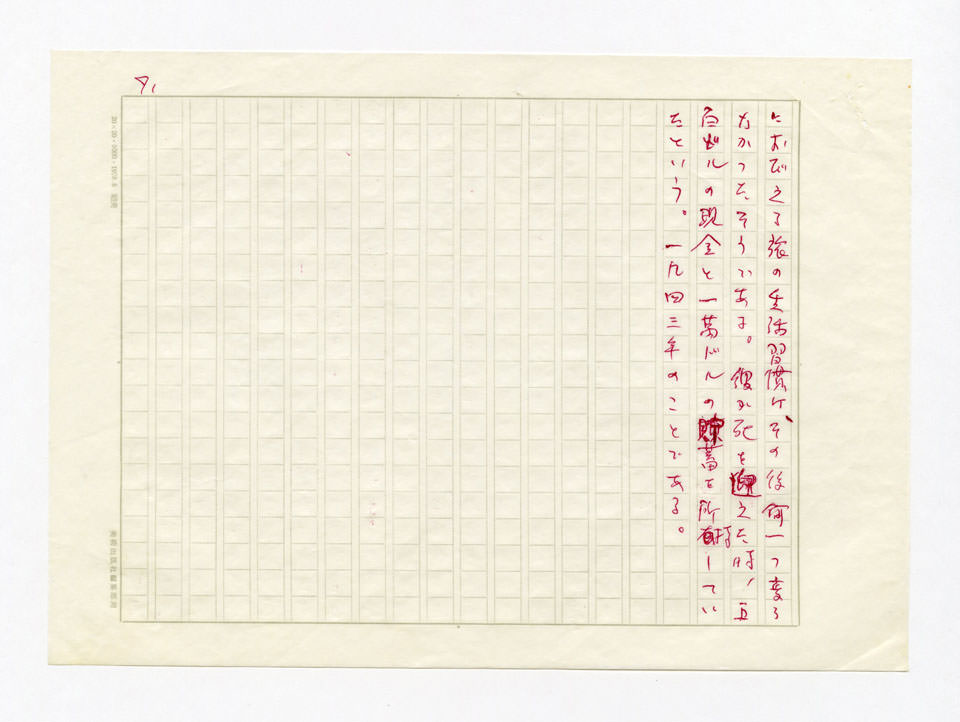 91
におびえる張の生活習慣は、その後何一つ変ら
なかったそうである。彼が死を迎えた時、五
百ドルの現金と一萬ドルの貯蓄を所持してい
たという。一九四三年のことである。
20×20
美術出版社編集部用